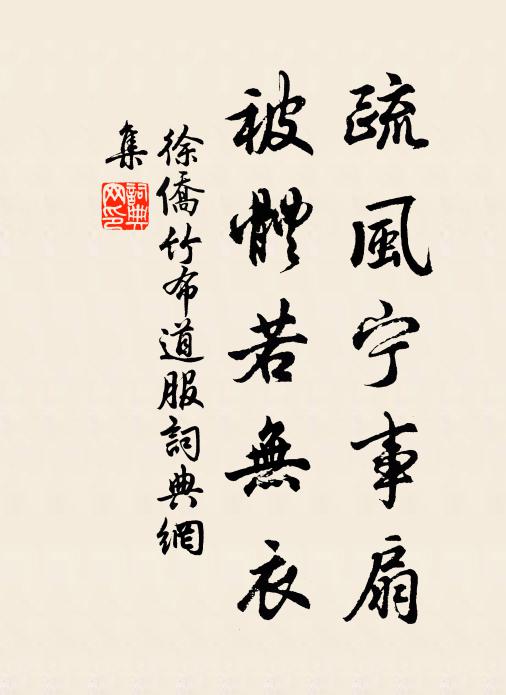 疏風宁事扇
被體若無衣
徐僑竹布道服詞典網
集
詞典
网印